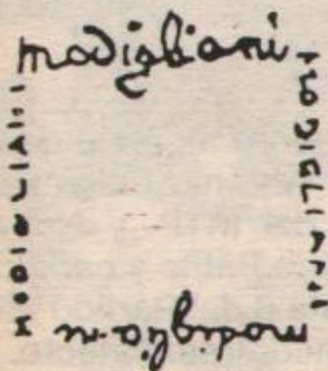 modigliani
MODIGLIANI
modiglia-ni
MODIGLIANI